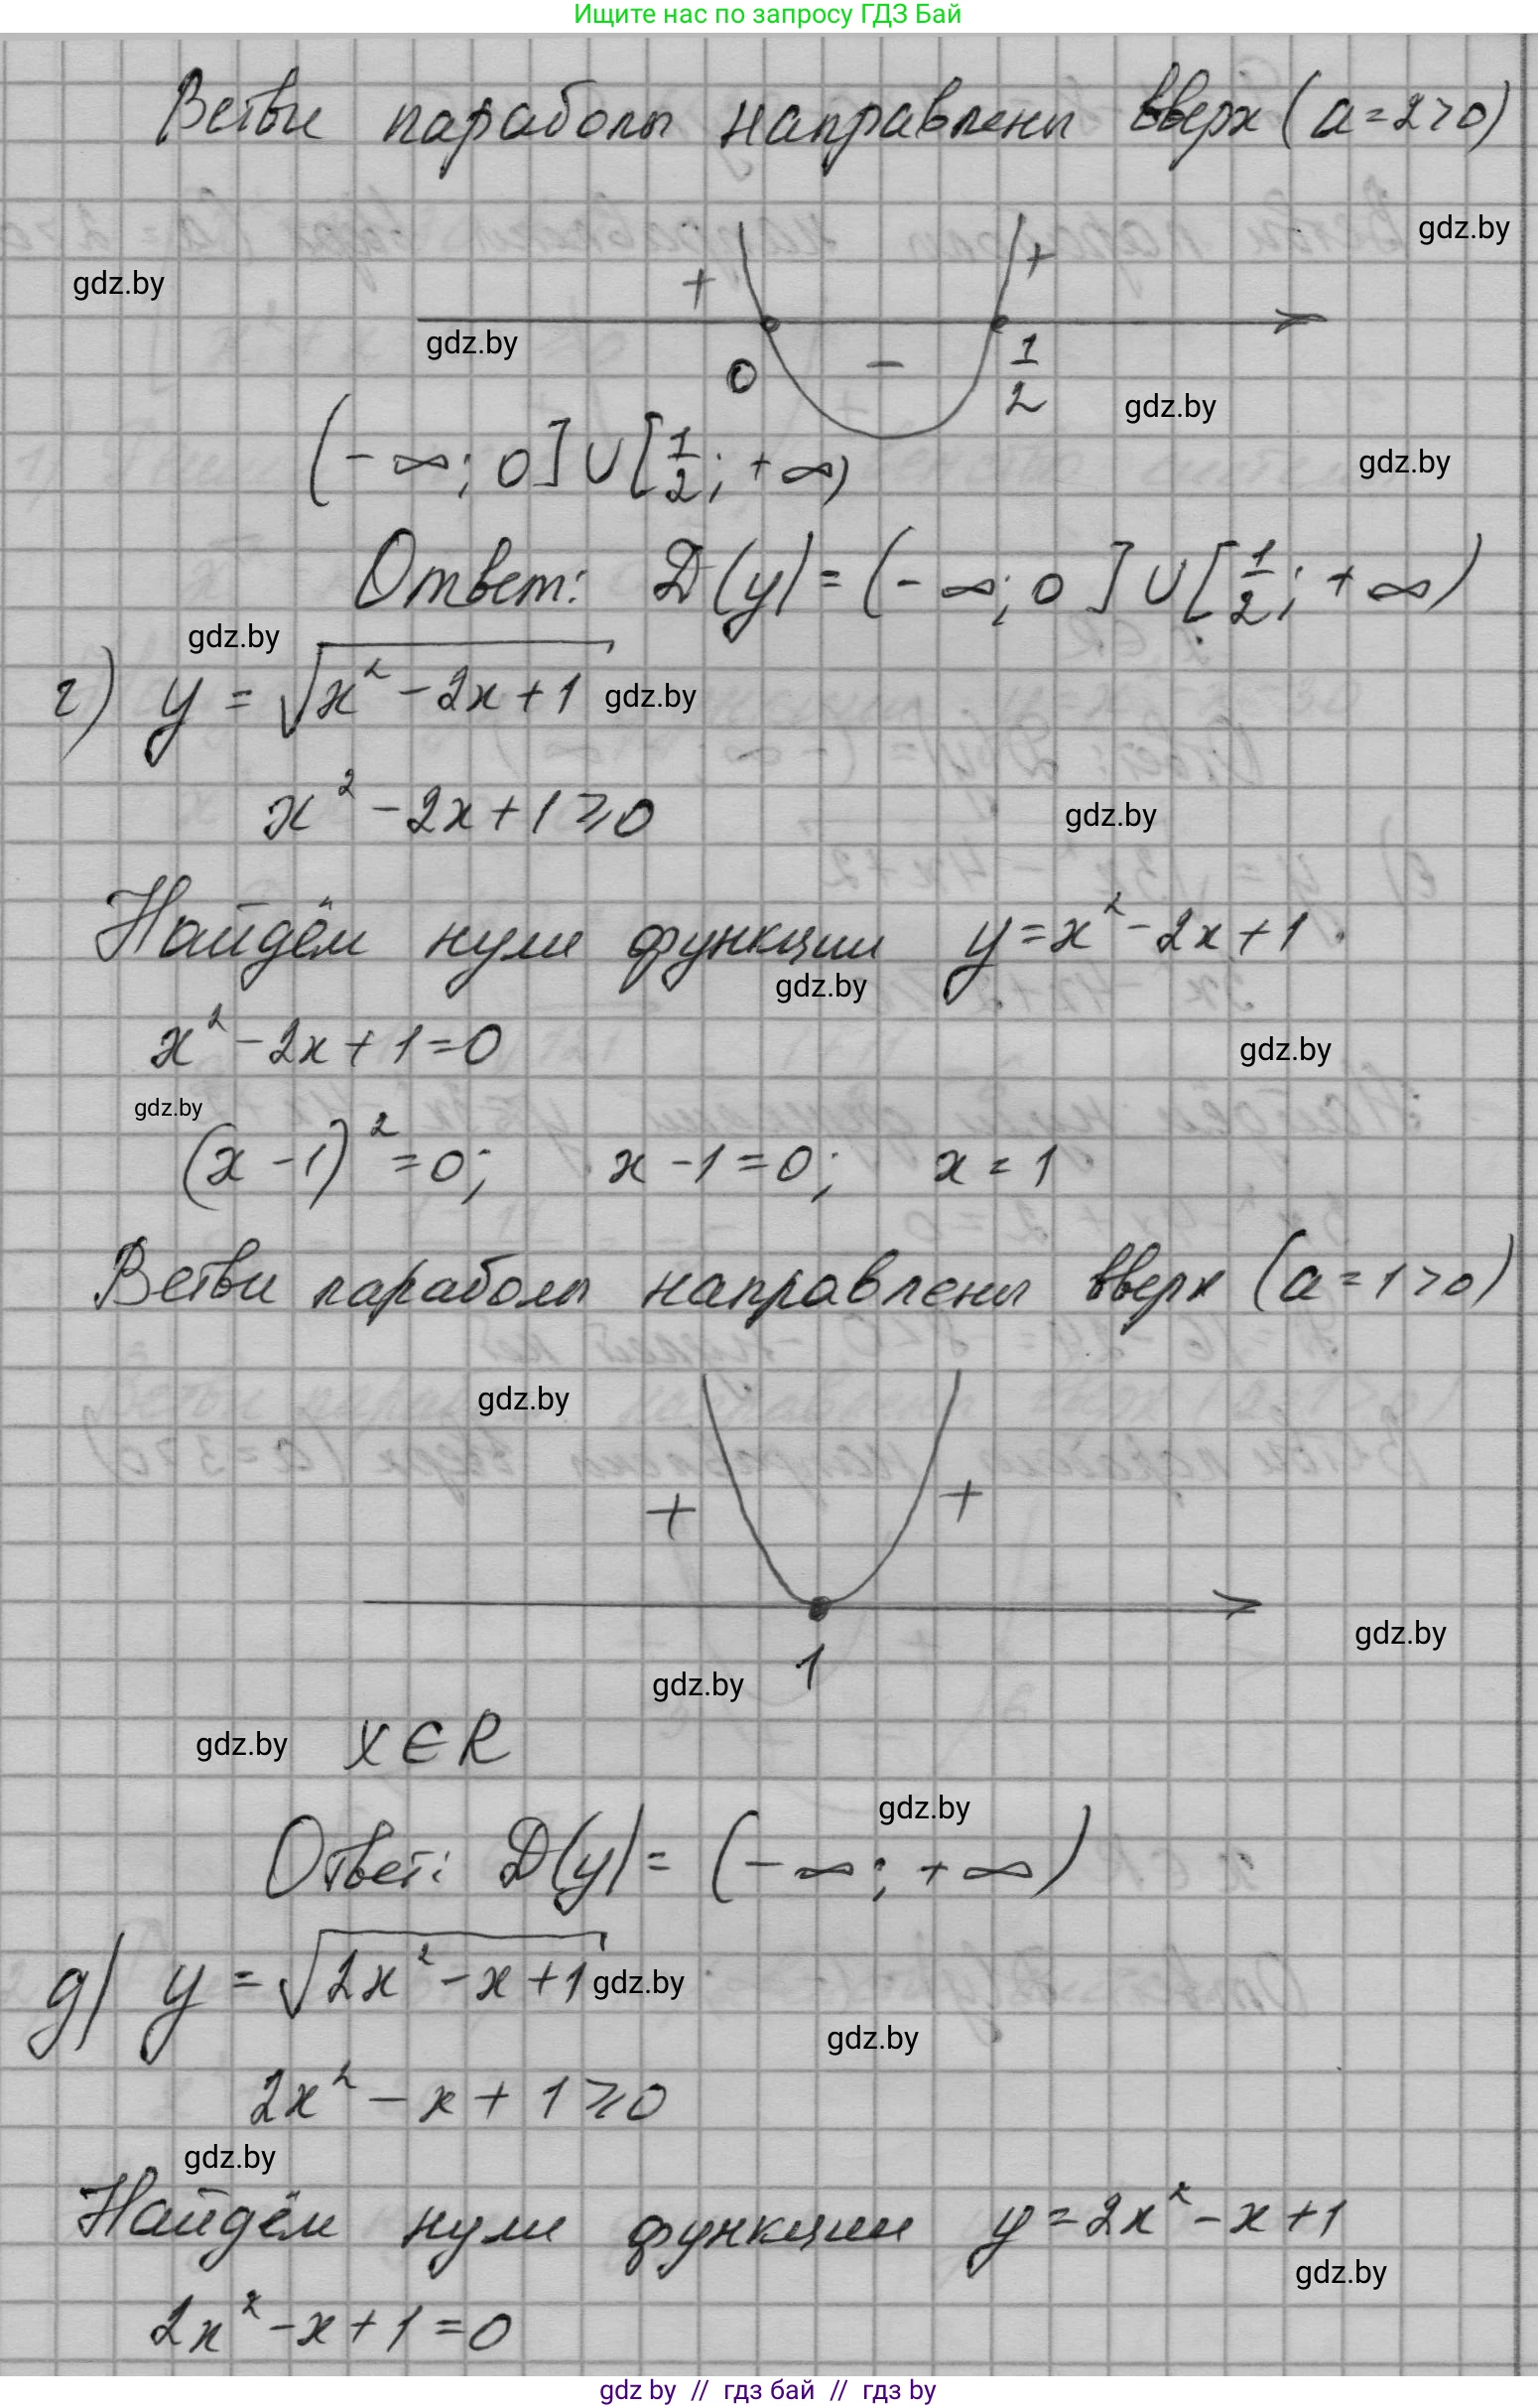 Ищите нас по запросу ГДЗ Бай
Ветви параболы направлены вверх (a=2>0)
gdz.by
gdz.by
+ +
gdz.by
0 − 1/2
gdz.by
(-∞; 0] ∪ [1/2; +∞)
gdz.by
Ответ: D(y) = (-∞; 0] ∪ [1/2; +∞)
gdz.by
г) y = √(x² - 2x + 1)
gdz.by
x² - 2x + 1 ⩾ 0
gdz.by
Найдём нули функции y = x² - 2x + 1
gdz.by
x² - 2x + 1 = 0
gdz.by
gdz.by
(x - 1)² = 0; x - 1 = 0; x = 1
Ветви параболы направлены вверх (a = 1 > 0)
gdz.by
+ +
gdz.by
1
gdz.by
gdz.by
x ∈ R
gdz.by
Ответ: D(y) = (-∞; +∞)
д) y = √(2x² - x + 1)
gdz.by
gdz.by
2x² - x + 1 ⩾ 0
gdz.by
Найдём нули функции y = 2x² - x + 1
gdz.by
2x² - x + 1 = 0
gdz by // гдз бай // гдз by